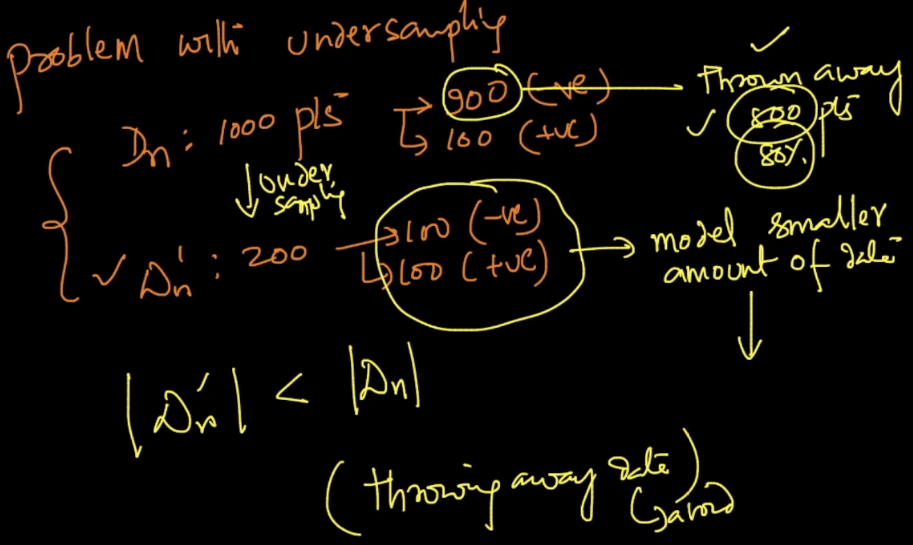 problem with undersampling
✓
Dn : 1000 pts → 900 (-ve) → Thrown away
↳ 100 (+ve) ✓ 800 pts
80%
↓ under sampling
✓ Dn' : 200 → 100 (-ve) → model smaller
↳ 100 (+ve) amount of data
↓
|Dn'| < |Dn|
(throwing away data)
↳ avoid